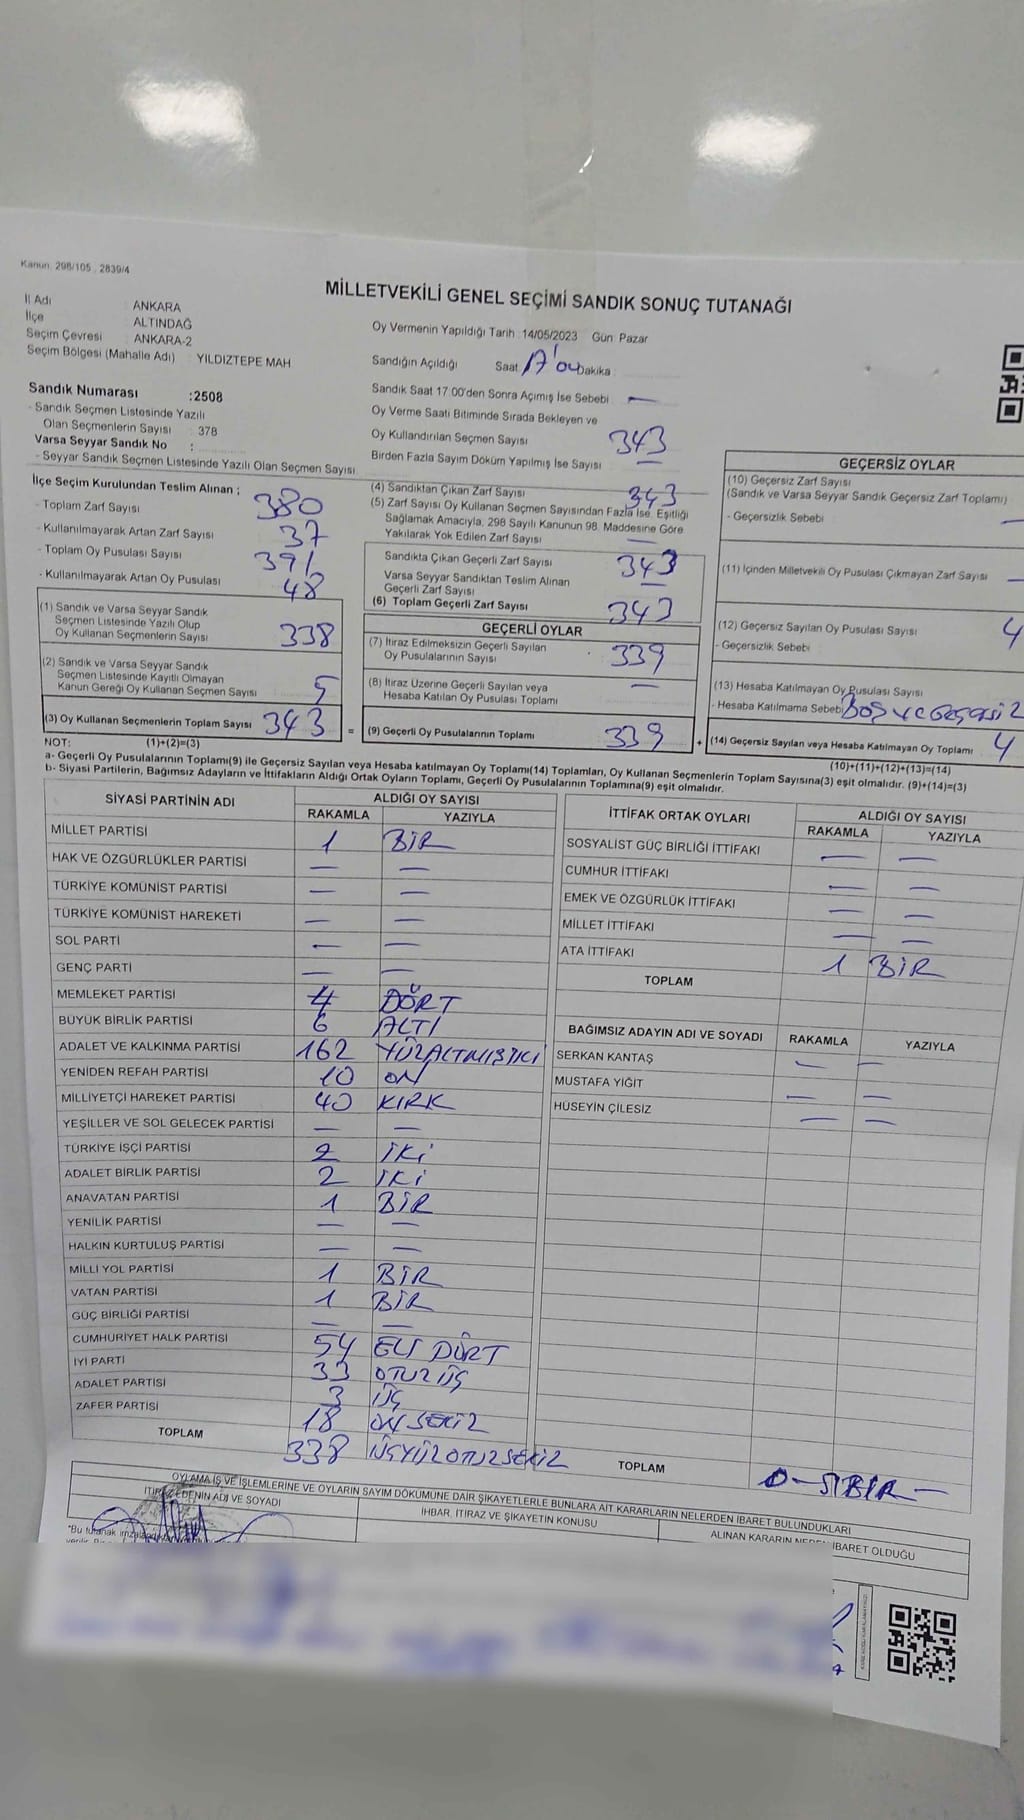 Kanun: 298/105 , 2839/4
MİLLETVEKİLİ GENEL SEÇİMİ SANDIK SONUÇ TUTANAĞI
İl Adı : ANKARA
İlçe ALTINDAĞ
Seçim Çevresi : ANKARA-2
Seçim Bölgesi (Mahalle Adı) : YILDIZTEPE MAH
Sandık Numarası :2508
- Sandık Seçmen Listesinde Yazılı
Olan Seçmenlerin Sayısı : 378
Varsa Seyyar Sandık No :
- Seyyar Sandık Seçmen Listesinde Yazılı Olan Seçmen Sayısı
İlçe Seçim Kurulundan Teslim Alınan ;
- Toplam Zarf Sayısı 380
- Kullanılmayarak Artan Zarf Sayısı 37
- Toplam Oy Pusulası Sayısı 391
- Kullanılmayarak Artan Oy Pusulası 48
(1) Sandık ve Varsa Seyyar Sandık
Seçmen Listesinde Yazılı Olup
Oy Kullanan Seçmenlerin Sayısı 338
(2) Sandık ve Varsa Seyyar Sandık
Seçmen Listesinde Kayıtlı Olmayan
Kanun Gereği Oy Kullanan Seçmen Sayısı 5
(3) Oy Kullanan Seçmenlerin Toplam Sayısı 343 =
Oy Vermenin Yapıldığı Tarih :14/05/2023 Gün: Pazar
Sandığın Açıldığı Saat 17'04 Dakika :
Sandık Saat 17:00'den Sonra Açımış İse Sebebi : —
Oy Verme Saati Bitiminde Sırada Bekleyen ve
Oy Kullandırılan Seçmen Sayısı 343
Birden Fazla Sayım Döküm Yapılmış İse Sayısı —
(4) Sandıktan Çıkan Zarf Sayısı 343
(5) Zarf Sayısı Oy Kullanan Seçmen Sayısından Fazla İse, Eşitliği
Sağlamak Amacıyla, 298 Sayılı Kanunun 98. Maddesine Göre
Yakılarak Yok Edilen Zarf Sayısı —
Sandıkta Çıkan Geçerli Zarf Sayısı 343
Varsa Seyyar Sandıktan Teslim Alınan
Geçerli Zarf Sayısı —
(6) Toplam Geçerli Zarf Sayısı 343
GEÇERLİ OYLAR
(7) İtiraz Edilmeksizin Geçerli Sayılan
Oy Pusulalarının Sayısı 339
(8) İtiraz Üzerine Geçerli Sayılan veya
Hesaba Katılan Oy Pusulası Toplamı —
(9) Geçerli Oy Pusulalarının Toplamı 339 +
GEÇERSİZ OYLAR
(10) Geçersiz Zarf Sayısı
(Sandık ve Varsa Seyyar Sandık Geçersiz Zarf Toplamı)
- Geçersizlik Sebebi —
(11) İçinden Milletvekili Oy Pusulası Çıkmayan Zarf Sayısı —
(12) Geçersiz Sayılan Oy Pusulası Sayısı 4
- Geçersizlik Sebebi
(13) Hesaba Katılmayan Oy Pusulası Sayısı
- Hesaba Katılmama Sebebi BOŞ ve GEÇERSİZ
(14) Geçersiz Sayılan veya Hesaba Katılmayan Oy Toplamı 4
NOT: (1)+(2)=(3) (10)+(11)+(12)+(13)=(14)
a- Geçerli Oy Pusulalarının Toplamı(9) ile Geçersiz Sayılan veya Hesaba katılmayan Oy Toplamı(14) Toplamları, Oy Kullanan Seçmenlerin Toplam Sayısına(3) eşit olmalıdır. (9)+(14)=(3)
b- Siyasi Partilerin, Bağımsız Adayların ve İttifakların Aldığı Ortak Oyların Toplamı, Geçerli Oy Pusulalarının Toplamına(9) eşit olmalıdır.
SİYASİ PARTİNİN ADI ALDIĞI OY SAYISI
RAKAMLA YAZIYLA
MİLLET PARTİSİ 1 BİR
HAK VE ÖZGÜRLÜKLER PARTİSİ — —
TÜRKİYE KOMÜNİST PARTİSİ — —
TÜRKİYE KOMÜNİST HAREKETİ — —
SOL PARTİ — —
GENÇ PARTİ — —
MEMLEKET PARTİSİ 4 DÖRT
BÜYÜK BİRLİK PARTİSİ 6 ALTI
ADALET VE KALKINMA PARTİSİ 162 YÜZALTMIŞİKİ
YENİDEN REFAH PARTİSİ 10 ON
MİLLİYETÇİ HAREKET PARTİSİ 40 KIRK
YEŞİLLER VE SOL GELECEK PARTİSİ — —
TÜRKİYE İŞÇİ PARTİSİ 2 İKİ
ADALET BİRLİK PARTİSİ 2 İKİ
ANAVATAN PARTİSİ 1 BİR
YENİLİK PARTİSİ — —
HALKIN KURTULUŞ PARTİSİ — —
MİLLİ YOL PARTİSİ 1 BİR
VATAN PARTİSİ 1 BİR
GÜÇ BİRLİĞİ PARTİSİ — —
CUMHURİYET HALK PARTİSİ 54 ELİ DÖRT
İYİ PARTİ 33 OTUZ ÜÇ
ADALET PARTİSİ 3 ÜÇ
ZAFER PARTİSİ 18 ON SEKİZ
TOPLAM 338 ÜÇYÜZOTUZSEKİZ
İTTİFAK ORTAK OYLARI ALDIĞI OY SAYISI
RAKAMLA YAZIYLA
SOSYALİST GÜÇ BİRLİĞİ İTTİFAKI — —
CUMHUR İTTİFAKI — —
EMEK VE ÖZGÜRLÜK İTTİFAKI — —
MİLLET İTTİFAKI — —
ATA İTTİFAKI 1 BİR
TOPLAM
BAĞIMSIZ ADAYIN ADI VE SOYADI RAKAMLA YAZIYLA
SERKAN KANTAŞ — —
MUSTAFA YİĞİT — —
HÜSEYİN ÇİLESİZ — —
TOPLAM
OYLAMA İŞ VE İŞLEMLERİNE VE OYLARIN SAYIM DÖKÜMÜNE DAİR ŞİKAYETLERLE BUNLARA AİT KARARLARIN NELERDEN İBARET BULUNDUKLARI
İTİRAZ EDENİN ADI VE SOYADI
İHBAR, İTİRAZ VE ŞİKAYETİN KONUSU
ALINAN KARARIN NEDEN İBARET OLDUĞU